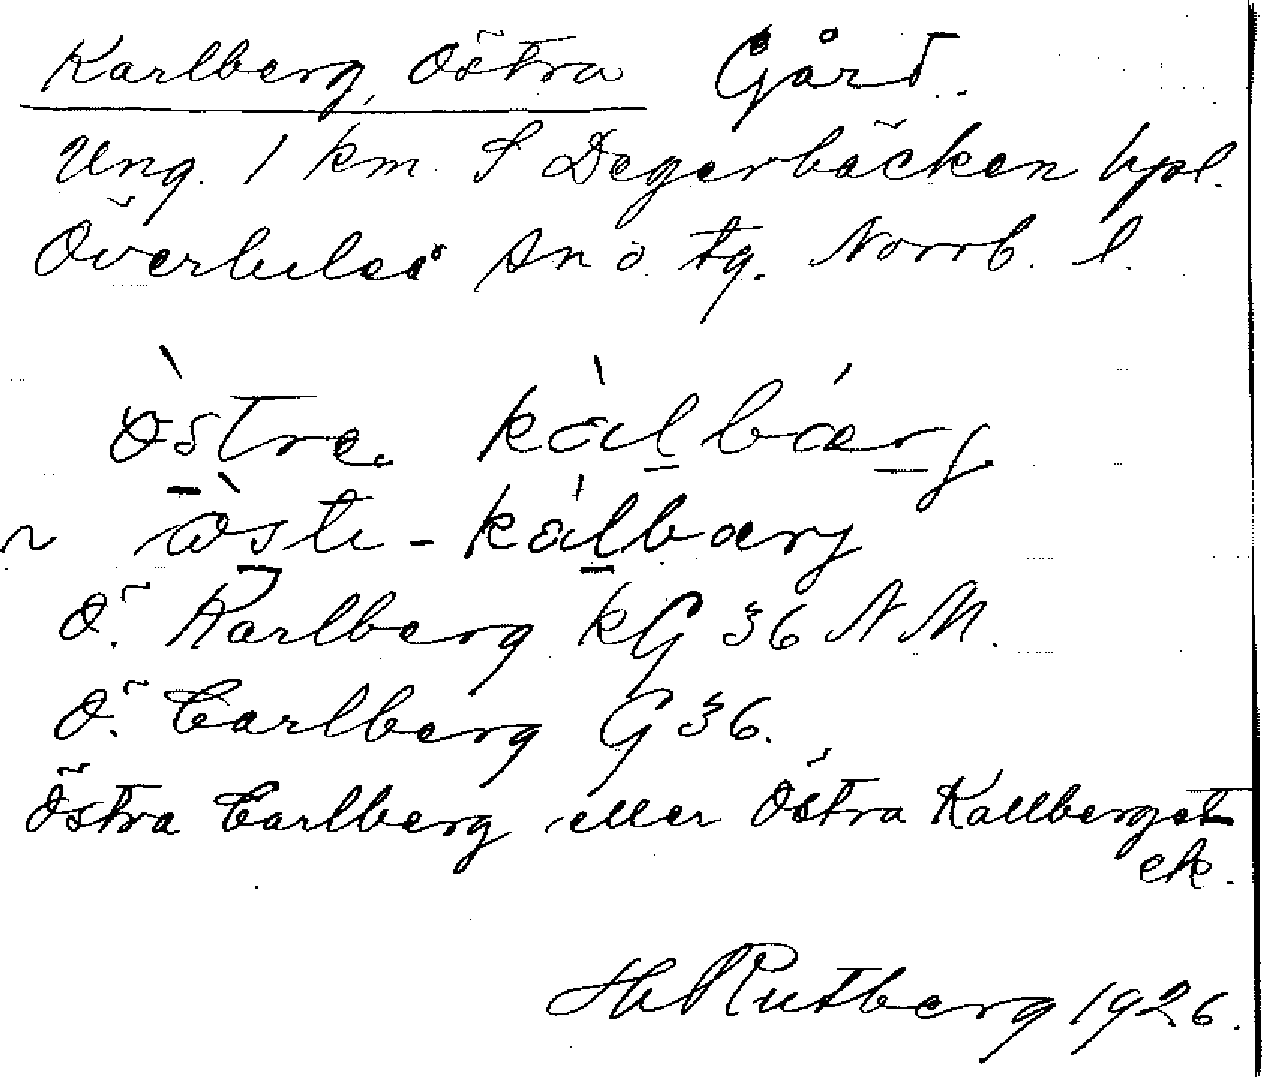 Karlberg, Östra Gård.
Ung. 1 km. S Degerbäcken hpl.
Överluleå sn ö. tg. Norrb. l.
östre kalbærj
~ öste-kalbærj
Ö. Karlberg kG 36 NM.
Ö. Carlberg G 36.
Östra Carlberg eller Östra Kallberget
ek.
Hn Rutberg 1926.